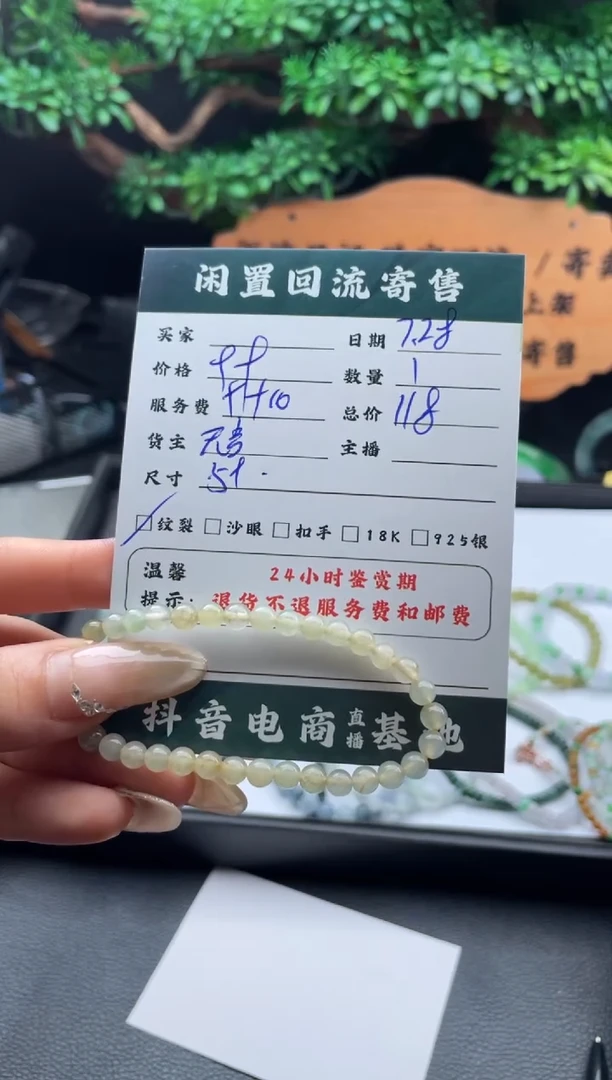 闲置回流寄售
买家 日期 7.28
价格 数量 1
服务费 总价 118
货主 主播
尺寸 51
□纹裂 □沙眼 □扣手 □18K □925银
温馨提示: 24小时鉴赏期
退货不退服务费和邮费
抖音电商直播基地
/ 寄
上架
寄售